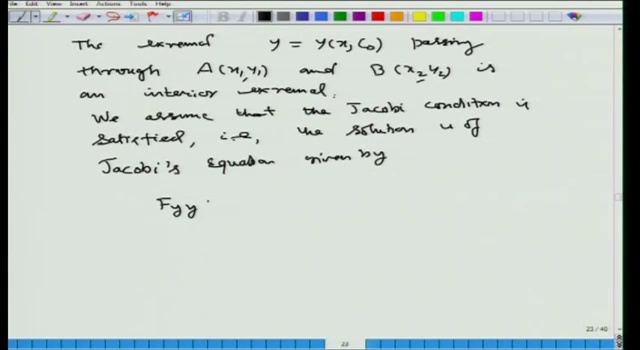 Edit View Insert Actions Tools Help
The exremal y = y(x, c₀) passing
through A(x₁,y₁) and B(x₂,y₂) is
an interior exremal.
We assume that the Jacobi condition is
satisfied, i.e, the solution u of
Jacobi's Equation given by
Fyy
23 / 40
23